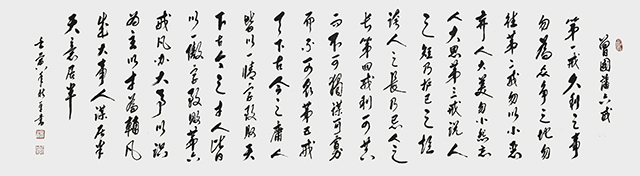 曾國藩六戒
第一戒久利之事
勿為众争之地勿
往第二戒勿以小恶
弃人大美勿小怨忘
人大恩第三戒说人
之短乃护己之短
誇人之長乃忌人之
长第四戒利可共
而不可獨謀可寡
而不可众第五戒
天下古今之庸人
皆以一惰字致败天
下古今之才人皆
以一傲字致敗第六
戒凡办大事以識
為主以才為輔凡
成大事人謀居半
天意居半